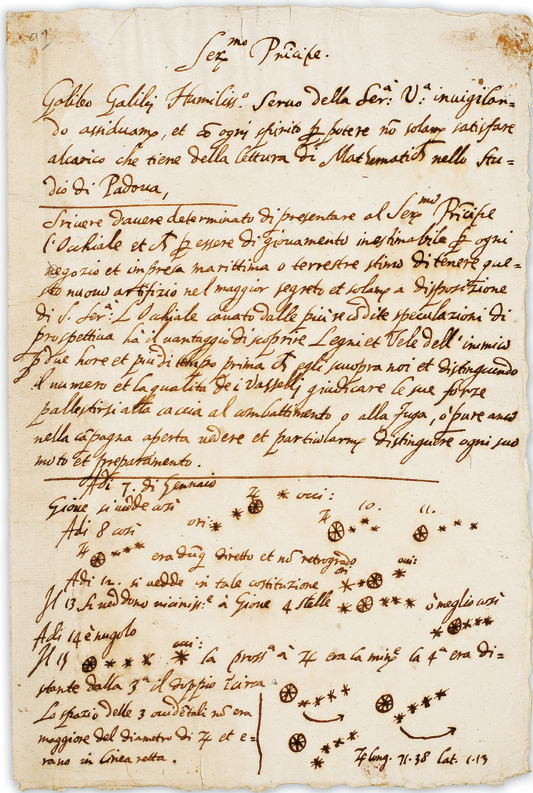 Ser.mo Principe.
Galileo Galilei Humiliss.o Servo della Ser.a V.a invigilan=
do assiduam.e, et cō ogni spirito p potere nō solam.e satisfare
al carico che tiene della lettura di Mathematiche nello Stu=
dio di Padova,
Scrivere d'avere determinato di presentare al Ser.mo Principe
l'Occhiale et p essere di giovamento inestimabile p ogni
negozio et impresa marittima o terrestre stimo di tenere que=
sto nuovo artifizio nel maggior segreto et solam.e a disposizione
di S. Ser.a L'Occhiale cavato dalle più recōdite speculazioni di
prospettiva ha il vantaggio di scoprire Legni et Vele dell'inimico
p due hore et più di tempo prima che egli scuopra noi et distinguendo
il numero et la qualità dei Vasselli giudicare le sue forze
pallestirsi alla caccia al combattimento o alla fuga, o pure anco
nella cāpagna aperta vedere et particolarm.e distinguere ogni suo
moto et preparamento.
Adi 7. di Gennaio
Giove si vedde così ♃ occi:
Adi 8 così ori: ♃ 10. 11.
♃ era dūq diretto et nō retrogrado
Adi 12. si vedde in tale costituzione ori occi:
Il 13 si veddono viciniss.e à Giove 4 stelle ò meglio così
Adi 14 è nugolo
Il 15 occi: la pross.a à ♃ era la min.e la 4.a era di=
stante dalla 3.a il doppio circa
Lo spazio delle 3 occidētali nō era
maggiore del diametro di ♃ et e=
rano in linea retta.
♃ long. 71.38 lat. 1.13